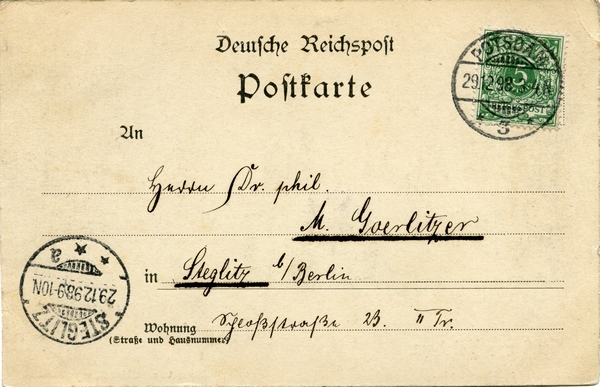 Deutsche Reichspost
Postkarte
POTSDAM
29.12.98
3
An
Herrn Dr. phil.
M. Goerlitzer
in Steglitz b/Berlin
Wohnung Schloßstraße 23. II Tr.
(Straße und Hausnummer)
STEGLITZ
29.12.98.9-10N
a